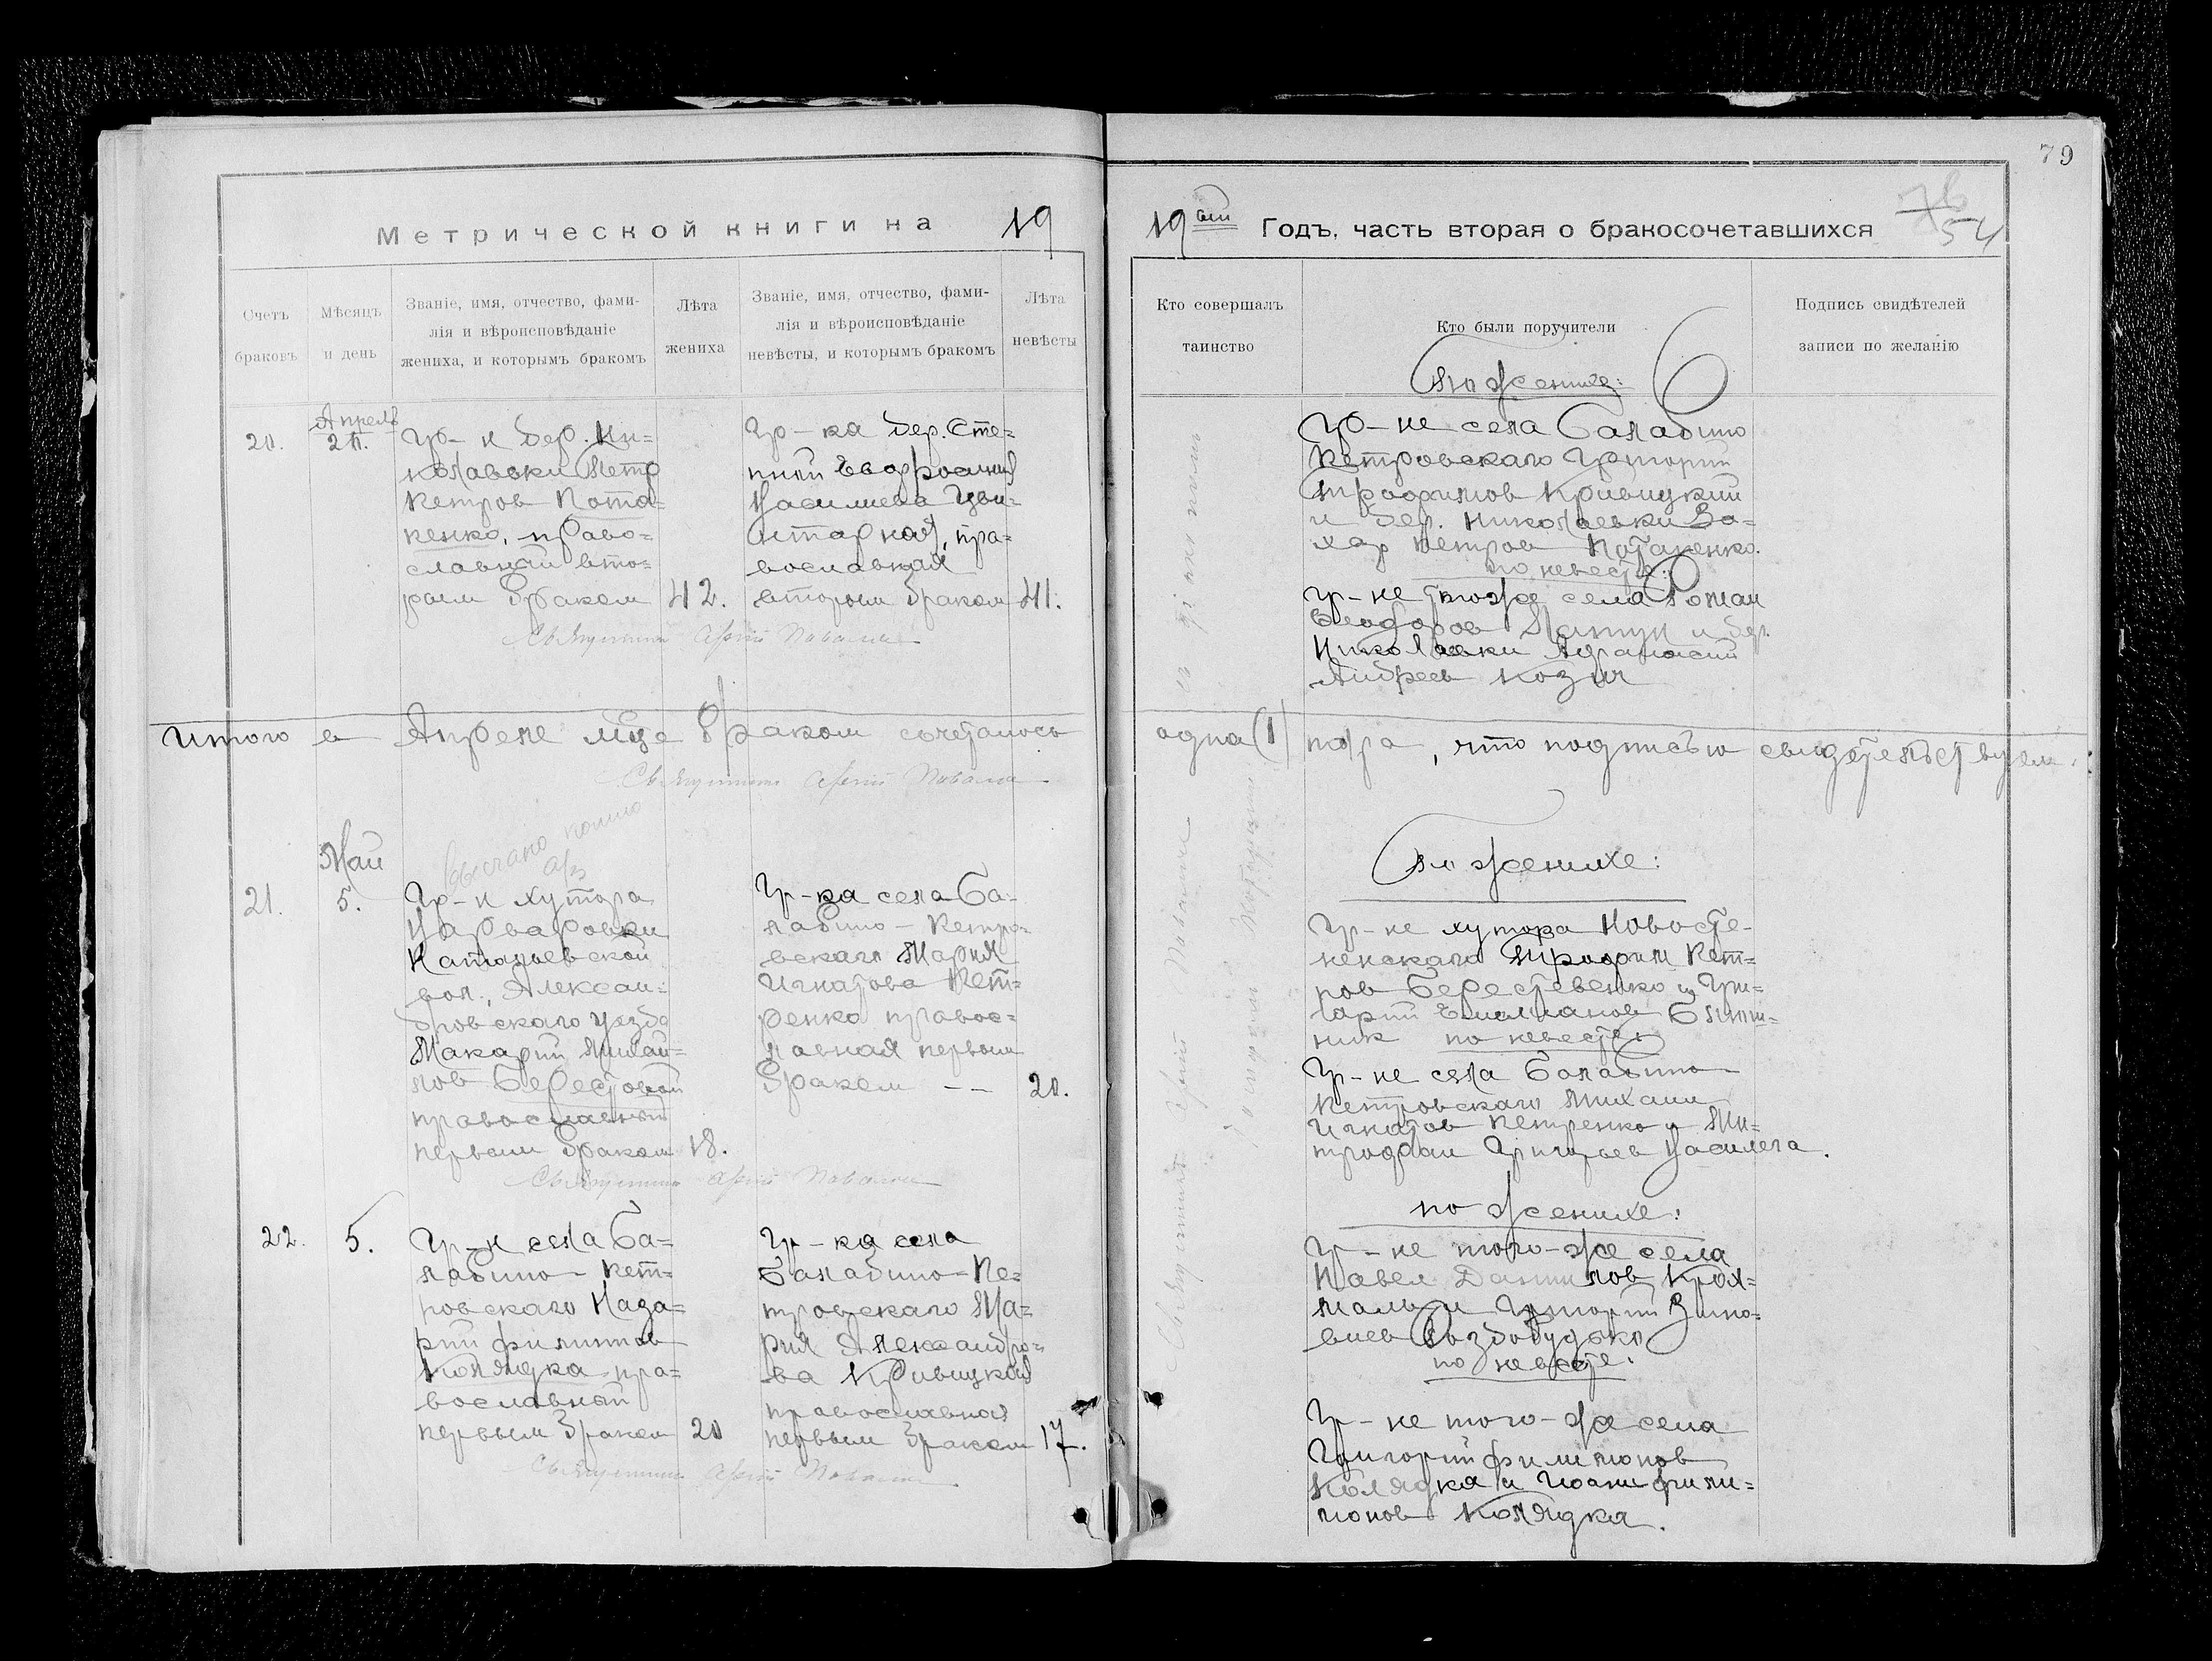 79
Метрической книги на 19
19ый Годъ, часть вторая о бракосочетавшихся
54
Счетъ браковъ
Мѣсяцъ и день
Званіе, имя, отчество, фами-
лія и вѣроисповѣданіе
жениха, и которымъ бракомъ
Лѣта
жениха
Званіе, имя, отчество, фами-
лія и вѣроисповѣданіе
невѣсты, и которымъ бракомъ
Лѣта
невѣсты
Кто совершалъ
таинство
Кто были поручители
Подпись свидѣтелей
записи по желанію
20.
Апрель
Гр-н дер. Ни=
колаевки Петр
Петров Пота=
пенко, право=
славный вто=
рым браком
42.
Гр-ка дер. Сте=
пной Евфросиния
Васильева
пра=
вославная
вторым браком
41.
Священник Павел
по женихе:
Гр-не села Балабино
Петровскаго Григорий
Трофимов Кривицкий
и дер. Николаевки За=
хар Петров Потапенко.
по невесте:
гр-не тоже села Роман
Феодоров и дер.
Николаевки Афанасий
Андреев Козич
Итого в Апреле м-це браком сочеталось
одна (1) пара, что подписью свидетельствуем.
Май
21.
5.
Гр-н хутора
Варваровки
Натальевской
вол., Алексан=
дровскаго уезда
Макарий Михай=
лов Берестовой
православный
первым браком
18.
Гр-ка села Ба=
лабино-Петро=
вскаго Мария
Игнатова Пет=
ренко правос=
лавная первым
браком --
20.
по женихе:
Гр-не хутора Новосте-
ненскаго Трофим Пет=
ров Берестовенко и Гри=
горий Емельянов
ник по невесте:
Гр-не села Балабино
Петровскаго Михаил
Игнатов Петренко и Ми=
трофан Григорьев
22.
5.
Гр-н села Ба=
лабино-Пет=
ровскаго Наза=
рий Филимонов
Колядка пра=
вославный
первым браком
20
Гр-ка села
Балабино-Пе=
тровскаго Ма=
рия Александро=
ва Кривицкая
православная
первым браком
17.
по женихе:
Гр-не того-же села
Павел Данилов Крох=
маль и Григорий Зино=
виев Роздобудько
по невесте:
Гр-не того-же села
Григорий Филимонов
Колядка и Иоанн Фили=
монов Колядка.